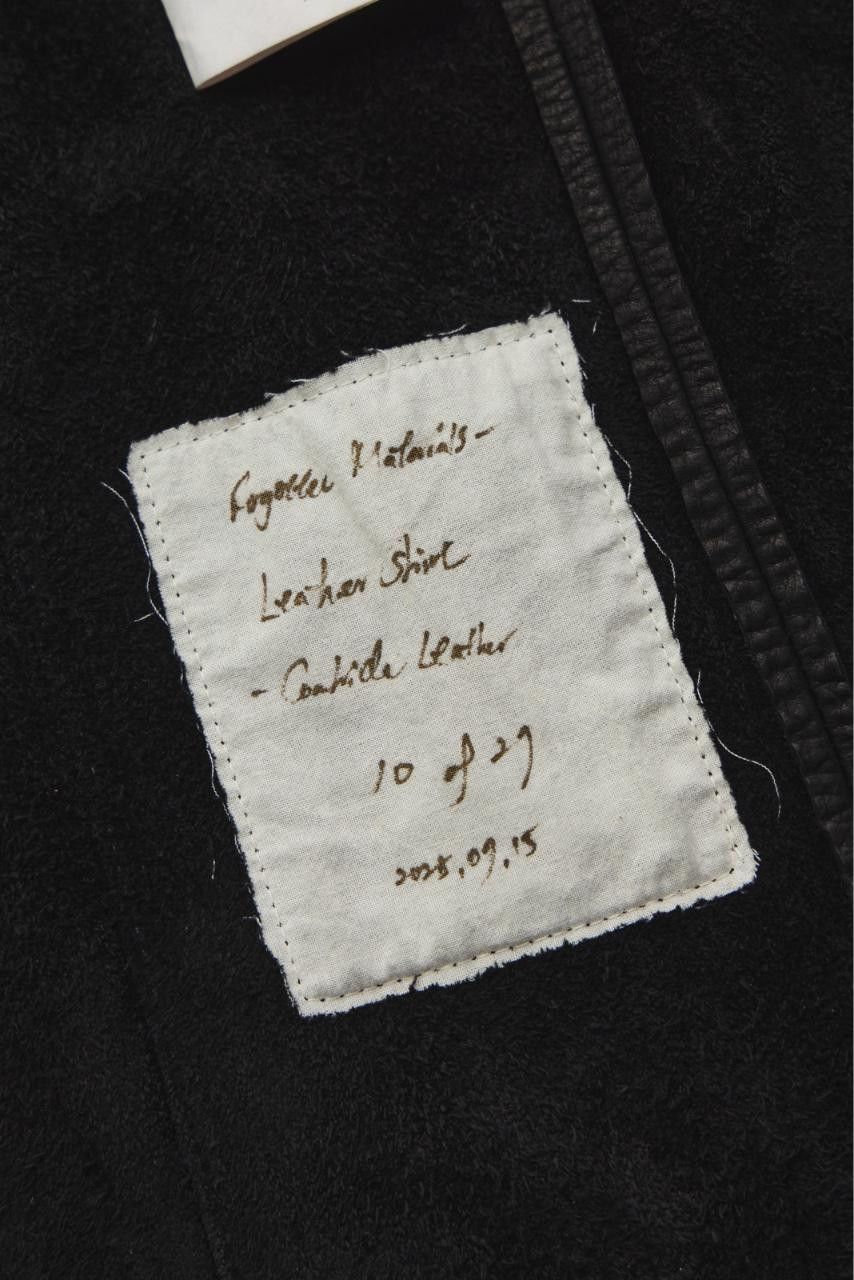 Forgotten Materials-
Leather Shirt
- Cowhide Leather
10 of 29
2025.09.15